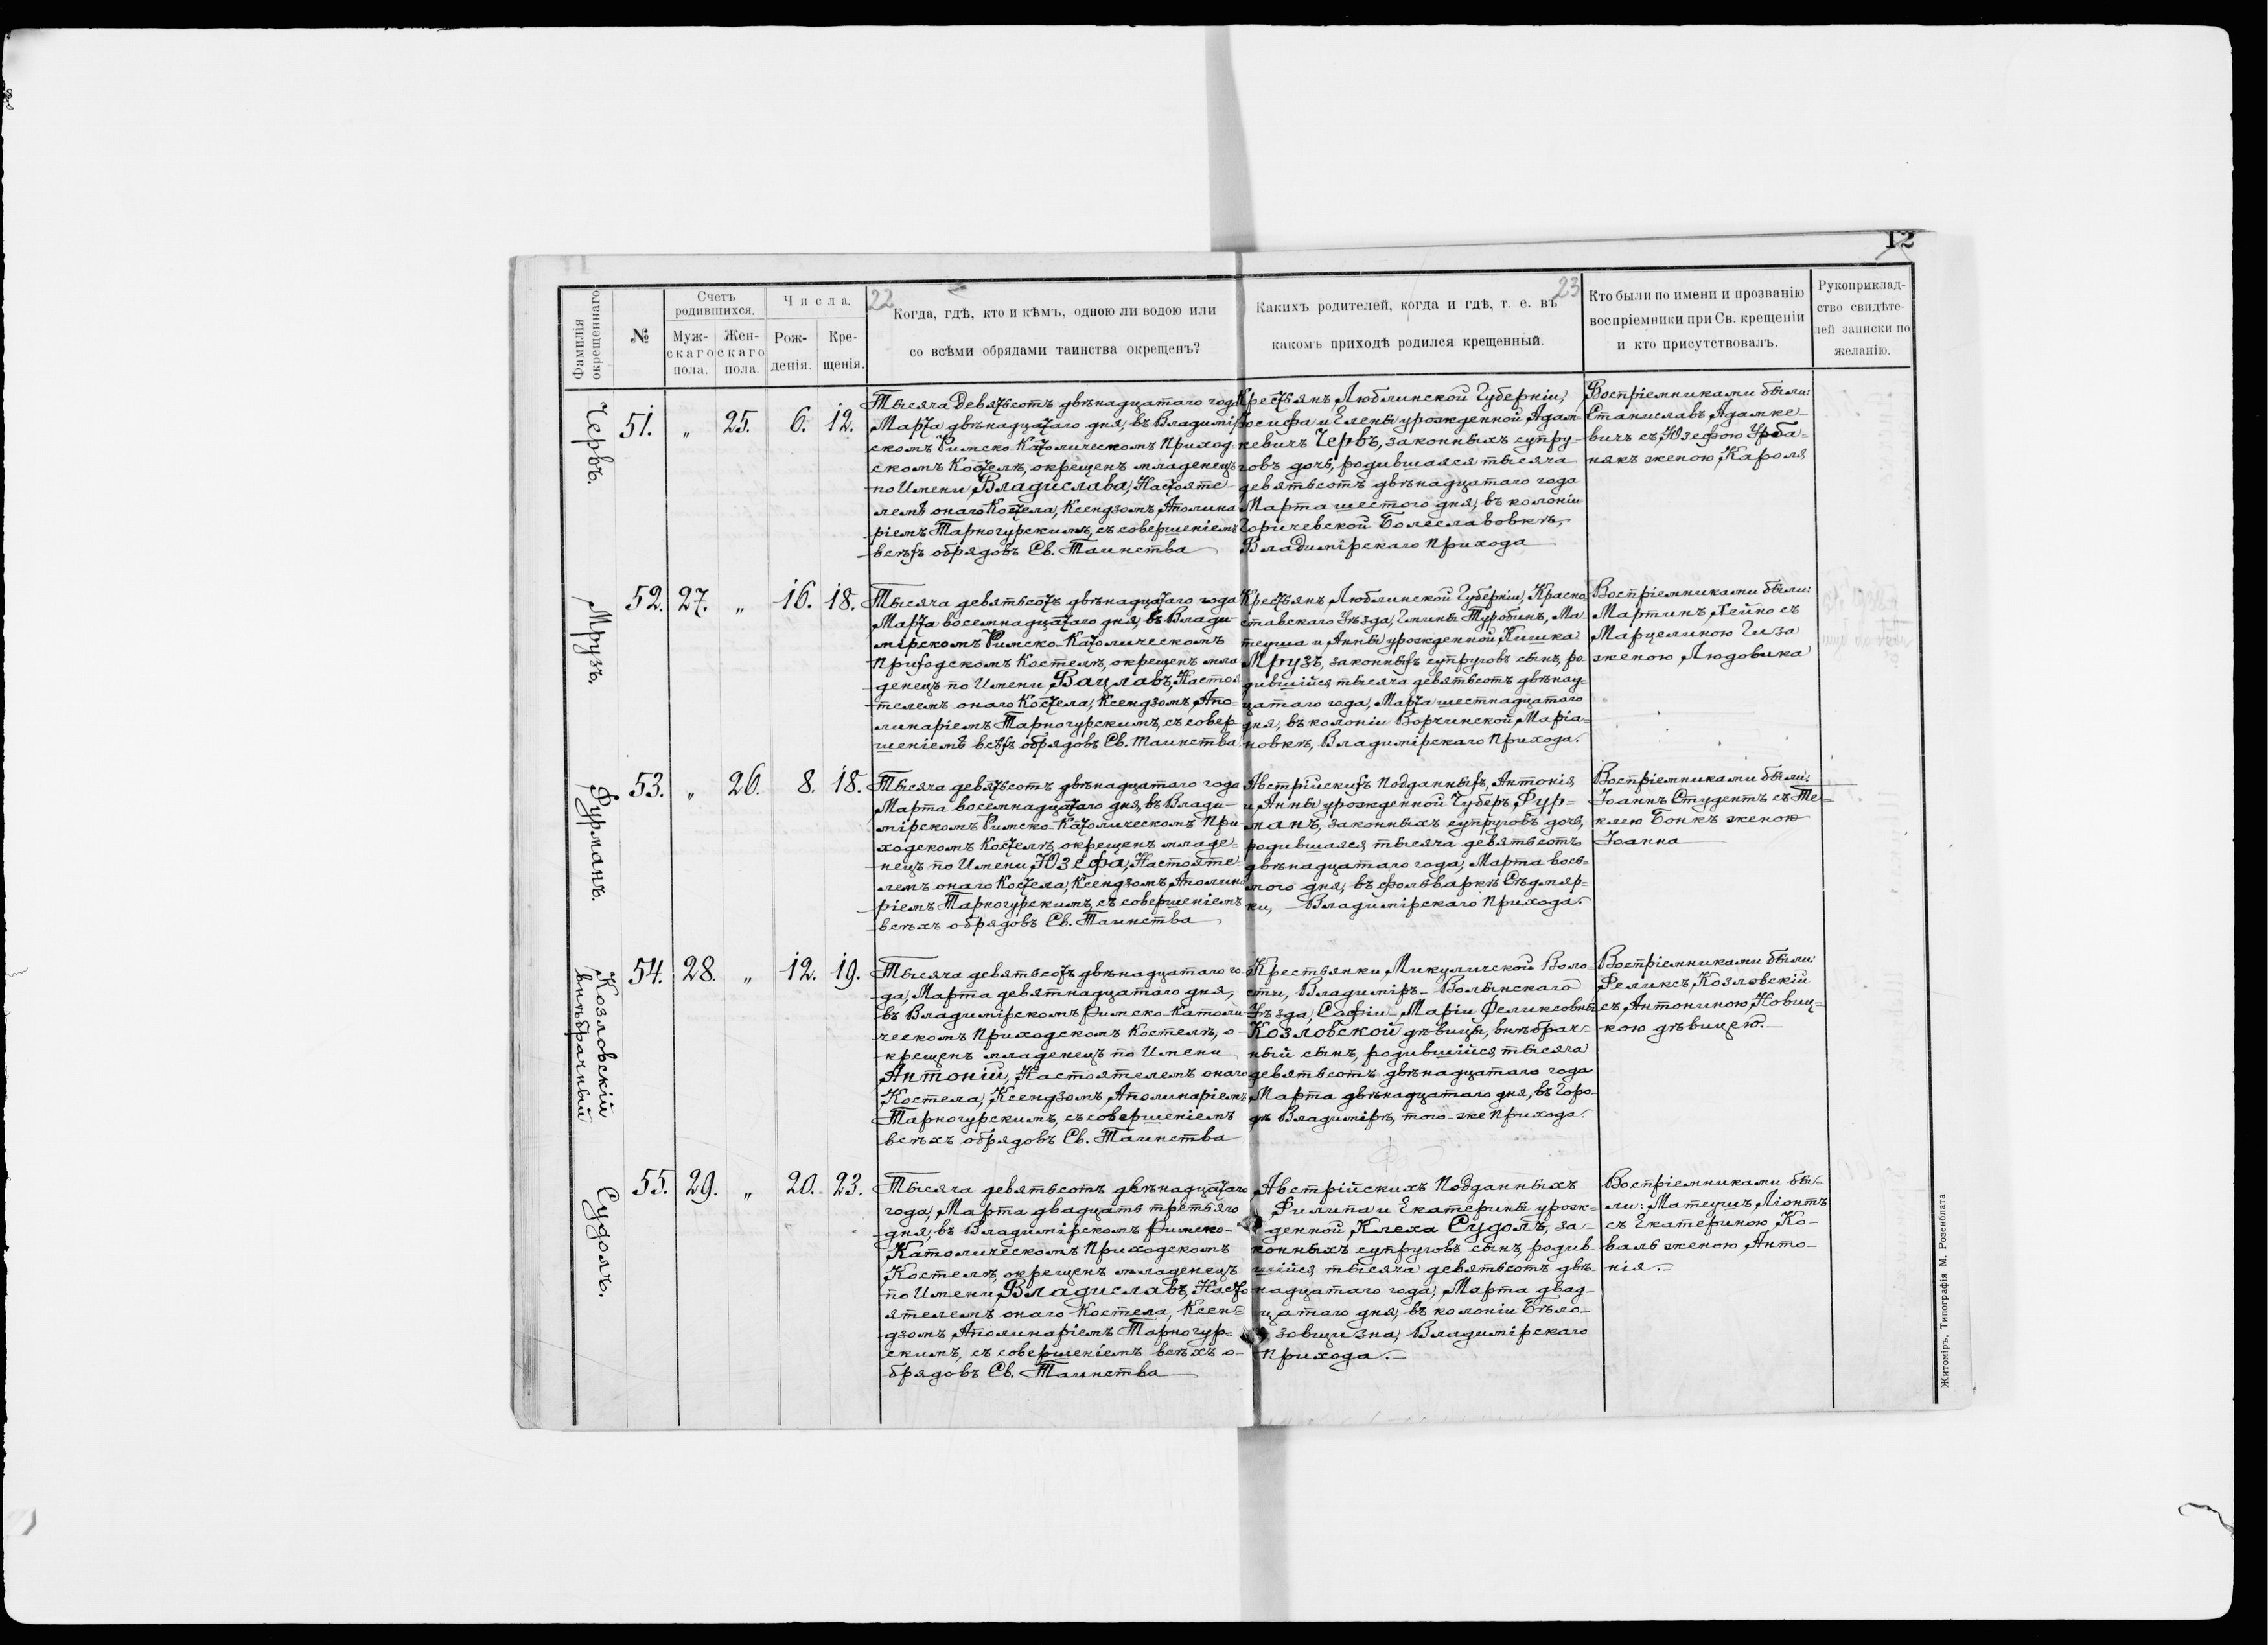 12
22
23
Фамилія окрещеннаго
№
Счетъ родившихся.
Муж-скаго пола.
Жен-скаго пола.
Числа.
Рож-денія.
Кре-щенія.
Когда, гдѣ, кто и кѣмъ, одною ли водою или
со всѣми обрядами таинства окрещенъ?
Какихъ родителей, когда и гдѣ, т. е. въ
какомъ приходѣ родился крещенный.
Кто были по имени и прозванію
воспріемники при Св. крещеніи
и кто присутствовалъ.
Рукоприклад-
ство свидѣте-
лей записки по
желанію.
Червъ.
51. „ 25. 6. 12.
Тысяча девятьсотъ двѣнадцатаго года
Марта двѣнадцатаго дня, въ Владимір
скомъ Римско-Католическомъ Приход
скомъ Костелѣ, окрещенъ младенецъ
по Имени Владислава, Настояте
лемъ онаго Костела, Ксендзомъ Аполина
ріемъ Тарногурскимъ, съ совершеніемъ
всѣхъ обрядовъ Св. Таинства
Крестьянъ Люблинской Губерніи,
Іосифа и Елены урожденной Адам
кевичъ Червъ, законныхъ супру-
говъ дочь, родившаяся тысяча
девятьсотъ двѣнадцатаго года
Марта шестого дня, въ колоніи
Горичевской Болеславовкѣ,
Владимірскаго Прихода
Воспріемниками были:
Станиславъ Адамке-
вичъ съ Юзефою Урба-
някъ женою Кароля
Мрузъ.
52. 27. „ 16. 18.
Тысяча девятьсотъ двѣнадцатаго года
Марта восемнадцатаго дня, въ Влади-
мірскомъ Римско-Католическомъ
Приходскомъ Костелѣ, окрещенъ мла
денецъ по Имени Вацлавъ, Настоя
телемъ онаго Костела, Ксендзомъ Апо-
линаріемъ Тарногурскимъ, съ совер-
шеніемъ всѣхъ обрядовъ Св. Таинства.
Крестьянъ Люблинской Губерніи, Красно
ставскаго Уѣзда, Гмины Туробинъ, Ма-
теуша и Анны урожденной Кишка
Мрузъ, законныхъ супруговъ сынъ, ро-
дившійся тысяча девятьсотъ двѣнад-
цатаго года, Марта шестнадцатаго
дня, въ колоніи Ворчинской Маріа-
новкѣ, Владимірскаго Прихода.
Воспріемниками были:
Мартинъ Хейно съ
Марцелиною Гиза
женою Людовика
Фурманъ.
53. „ 26. 8. 18.
Тысяча девятьсотъ двѣнадцатаго года
Марта восемнадцатаго дня, въ Влади-
мірскомъ Римско-Католическомъ При
ходскомъ Костелѣ, окрещенъ младе-
нецъ по Имени Юзефа, Настояте
лемъ онаго Костела, Ксендзомъ Аполина
ріемъ Тарногурскимъ, съ совершеніемъ
всѣхъ обрядовъ Св. Таинства
Австрійскихъ Подданныхъ, Антонія
и Анны урожденной Губеръ Фур-
манъ, законныхъ супруговъ дочь,
родившаяся тысяча девятьсотъ
двѣнадцатаго года, Марта вось-
мого дня, въ фольваркѣ Сѣдмяр-
ки, Владимірскаго Прихода.
Воспріемниками были:
Іоаннъ Студентъ съ Те-
клею Бонкъ женою
Іоанна
Козловскій
внѣбрачный
54. 28. „ 12. 19.
Тысяча девятьсотъ двѣнадцатаго го-
да, Марта девятнадцатаго дня,
въ Владимірскомъ Римско-Католи-
ческомъ Приходскомъ Костелѣ, о-
крещенъ младенецъ по Имени
Антоній, Настоятелемъ онаго
Костела, Ксендзомъ Аполинаріемъ
Тарногурскимъ, съ совершеніемъ
всѣхъ обрядовъ Св. Таинства
Крестьянки Микуличской Воло-
сти, Владиміръ-Волынскаго
Уѣзда, Софіи-Маріи Феликсовны
Козловской дѣвицы, внѣбрач-
ный сынъ, родившійся тысяча
девятьсотъ двѣнадцатаго года
Марта двѣнадцатаго дня, въ Горо-
дѣ Владимірѣ, того-же Прихода.
Воспріемниками были:
Феликсъ Козловскій
съ Антониною Новиц-
кою дѣвицею.
Судолъ.
55. 29. „ 20. 23.
Тысяча девятьсотъ двѣнадцатаго
года, Марта двадцать третьяго
дня, въ Владимірскомъ Римско-
Католическомъ Приходскомъ
Костелѣ, окрещенъ младенецъ
по Имени Владиславъ, Насто
ятелемъ онаго Костела, Ксен-
дзомъ Аполинаріемъ Тарногур-
скимъ, съ совершеніемъ всѣхъ о-
брядовъ Св. Таинства
Австрійскихъ Подданныхъ
Филипа и Екатерины урож-
денной Клеха Судолъ, за-
конныхъ супруговъ сынъ, родив-
шійся тысяча девятьсотъ двѣ-
надцатаго года, Марта двад-
цатаго дня, въ колоніи Бѣло-
зовщизна, Владимірскаго
Прихода.
Воспріемниками бы-
ли: Матеушъ Ліонтъ
съ Екатериною Ко-
валь женою Анто-
нія.
Житоміръ, Типографія М. Розенблата